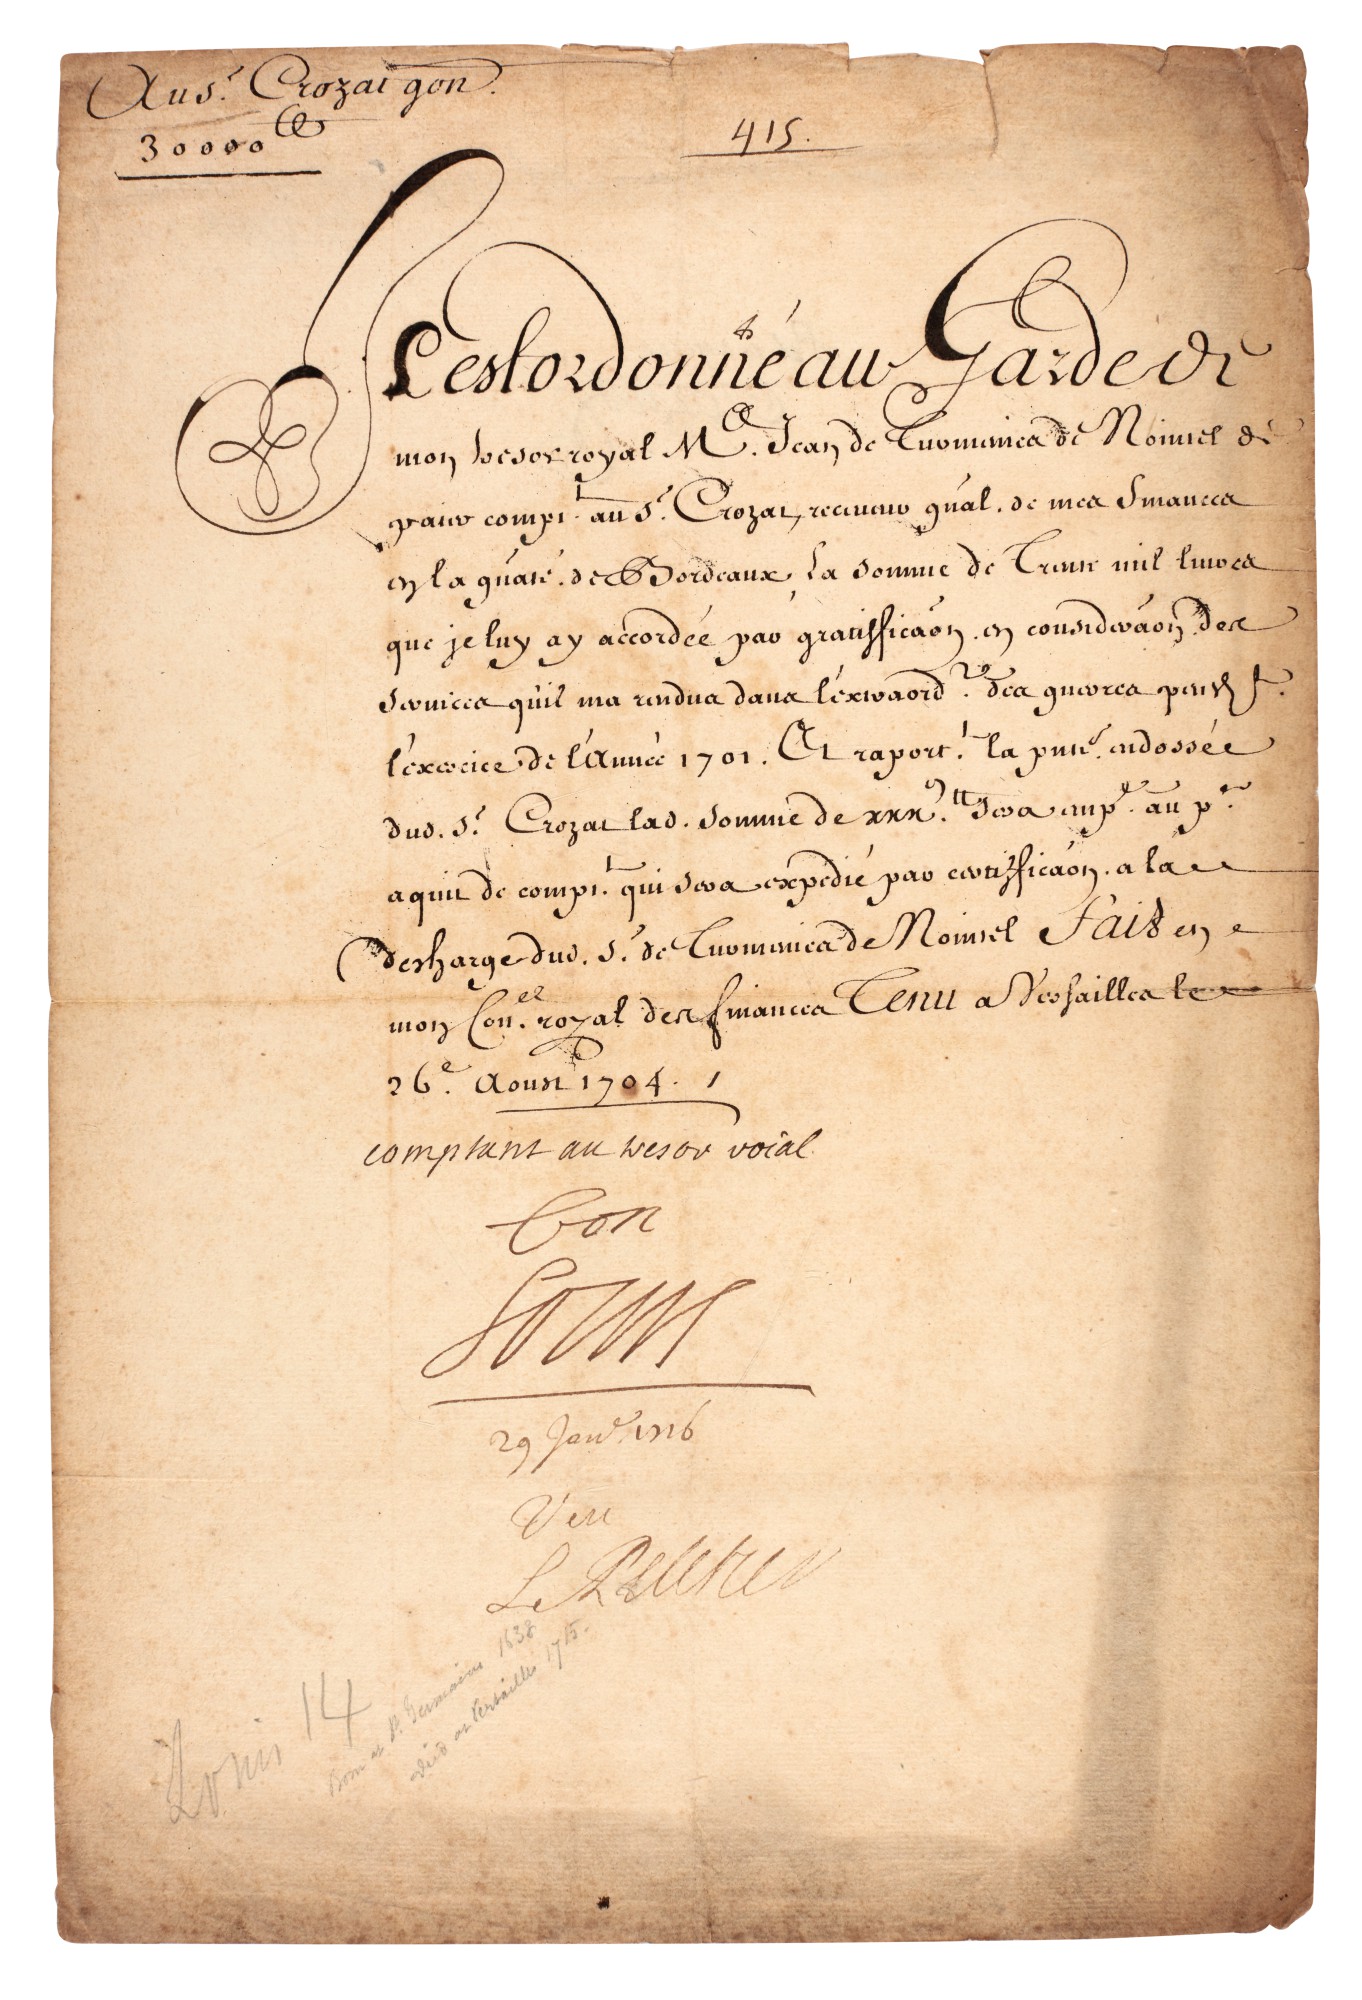 Au s.r Crozat gñal.
30000lt
415.
Il est ordonné au Garde de
mon tresor royal M.e Jean de Turmenies de Nointel de
payer compt.t au s.r Crozat, receveur gñal. de mes finances
en la gñalité. de Bordeaux, la somme de Trente mil livres
que je luy ay accordée par gratifficaõn. en consideraõn. des
services qu'il m'a rendus dans l'extraord.re des guerres pend.t
l'exercice de l'année 1701. Et raport.t la pnte. endossée
dud. s.r Crozat lad. somme de xxx.m lt sera emp.ée au p.er
aquit de compt.t qui sera expedié par certifficaõn. a la
descharge dud. s.r de Turmenies de Nointel Fait en
mon Con.el royal des finances Tenu a Versailles le
26.e Aoust 1704.
comptant au tresor roial
bon
Louis
29 Janv.r 1716
Veu
Le Peletier
Louis 14
Born at St. Germains 1638
died at Versailles 1715.